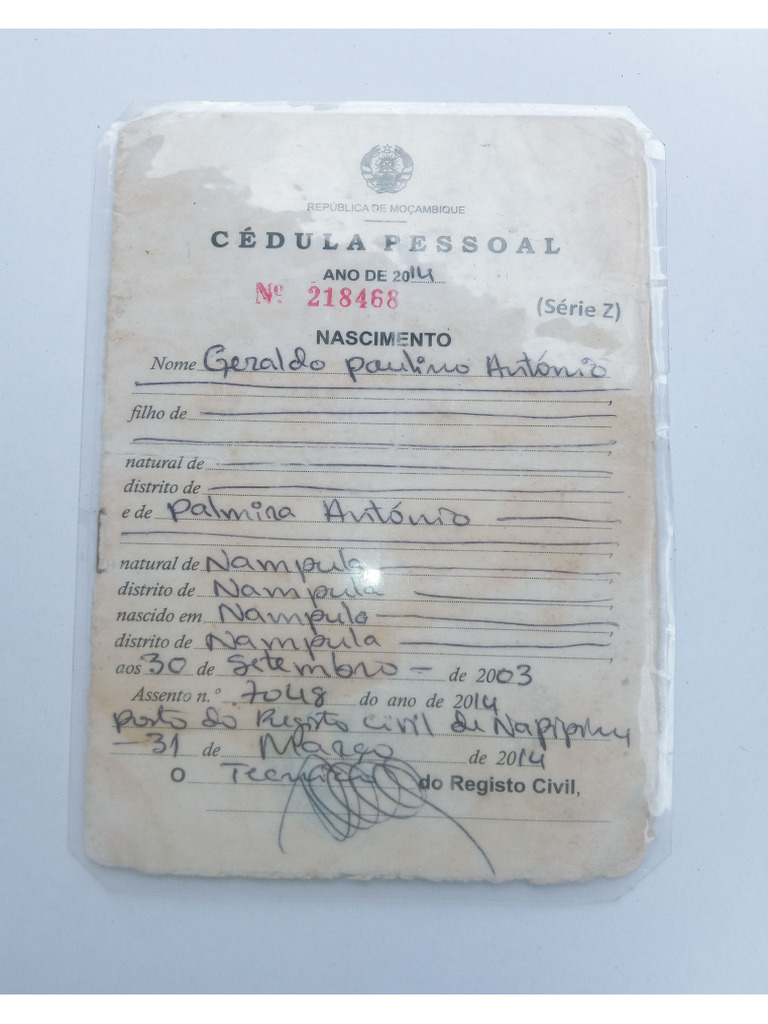 REPÚBLICA DE MOÇAMBIQUE
CÉDULA PESSOAL
ANO DE 2014
Nº 218468
(Série Z)
NASCIMENTO
Nome Geraldo Paulino António
filho de
natural de
distrito de
e de Palmira António
natural de Nampula
distrito de Nampula
nascido em Nampula
distrito de Nampula
aos 30 de Setembro de 2003
Assento n.º 7048 do ano de 2014
posto do Registo Civil de
31 de Março de 2014
O Técnico do Registo Civil,